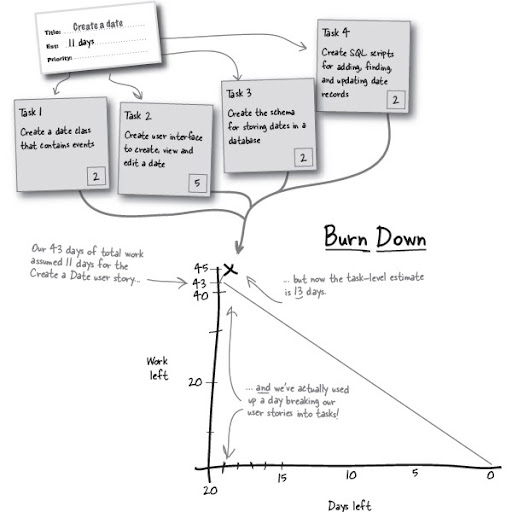 Title: Create a date
Est: 11 days
Priority:
Task 1
Create a date class
that contains events
2
Task 2
Create user interface
to create, view and
edit a date
5
Task 3
Create the schema
for storing dates in a
database
2
Task 4
Create SQL scripts
for adding, finding,
and updating date
records
2
Burn Down
Our 43 days of total work
assumed 11 days for the
Create a Date user story...
... but now the task-level estimate
is 13 days.
45
43
40
20
Work
left
... and we've actually used
up a day breaking our
user stories into tasks!
20
15
10
5
0
Days left